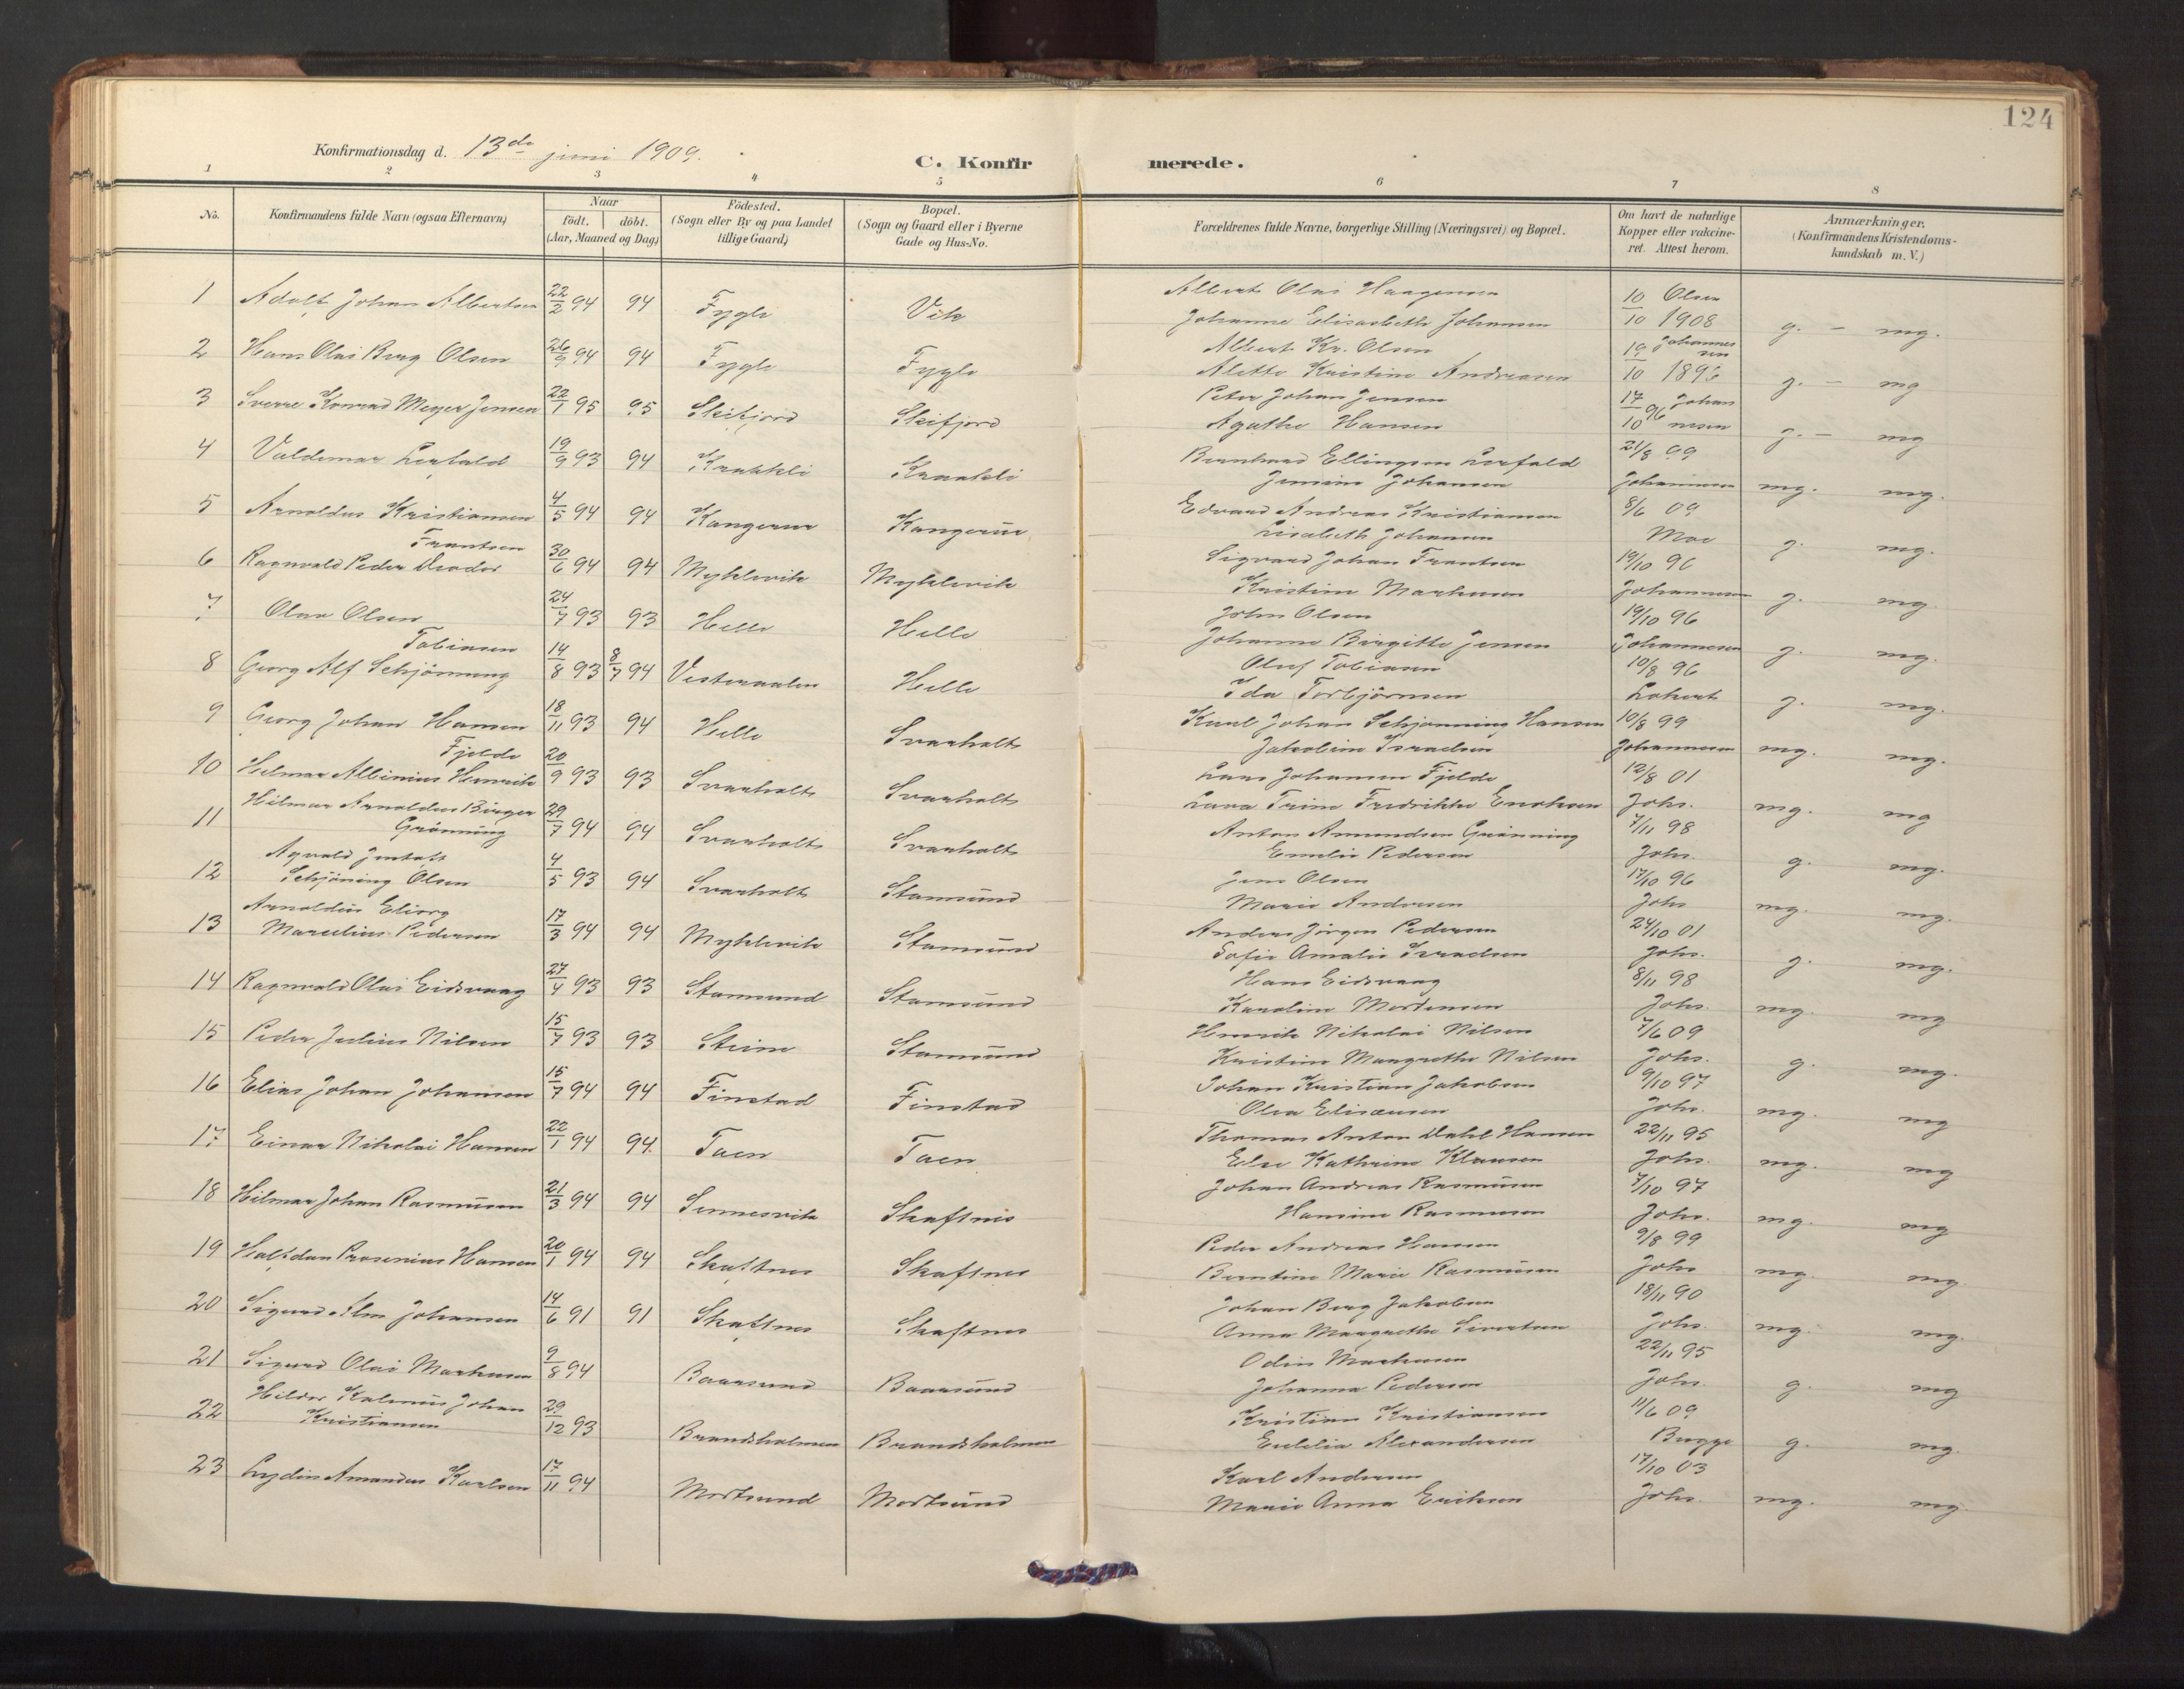 124
Konfirmationsdag d. 13de juni 1909.
C. Konfirmerede.
1 2 3 4 5 6 7 8
No. Konfirmandens fulde Navn (ogsaa Efternavn) Naar født. døbt. (Aar, Maaned og Dag) Fødested. (Sogn eller By og paa Landet tillige Gaard) Bopæl. (Sogn og Gaard eller i Byerne Gade og Hus-No. Forældrenes fulde Navne, borgerlige Stilling (Næringsvei) og Bopæl. Om havt de naturlige Kopper eller vakcineret. Attest herom. Anmærkninger. (Konfirmandens Kristendomskundskab m. V.)
1 Adolf Johan Albertsen 22/2 94 94 Fygle Vik Albert Olai Haagensen 10/10 Olsen
Johanne Elisabeth Johansen 1908 g. – mg.
2 Hans Olai Berg Olsen 26/9 94 94 Fygle Fygle Albert Kr. Olsen 19/10 Johannessen
Alette Kristine Andreasen 1896 g. – mg
3 Sverre Konrad Meyer Jensen 22/1 95 95 Skifjord Skifjord Peter Johan Jensen 17/10 96 Johannesen
Agathe Hansen g. – mg
4 Valdemar Lerfald 19/9 93 94 Kraakli Kraakli Bernhard Ellingsen Lerfald 21/8 99
Jensine Johansen Johannesen mg. mg.
5 Arnoldus Kristiansen 4/5 94 94 Kangerur Kangerur Edvard Andreas Kristiansen 8/6 09
Lisabeth Johansen Moe g. mg.
6 Ragnvald Peder Teodor Frantsen 30/6 94 94 Myklevik Myklevik Sigvard Johan Frantsen 19/10 96
Kristine Markusen Johannesen g. mg.
7 Olav Olsen 24/7 93 93 Helle Helle John Olsen 19/10 96
Johanne Birgitte Jensen Johannesen g. mg.
8 Georg Alf Schjønning Tobiasen 14/8 93 8/7 94 Vesteraalen Helle Oluf Tobiasen 10/8 96
Ida Torbjørnsen g. mg.
9 Georg Johan Hansen 18/11 93 94 Helle Svarholt Karl Johan Schjønning Hansen 10/8 99
Jakobine Israelsen Johannesen mg. mg.
10 Helmar Albinius Henrik Fjelde 20/9 93 93 Svarholt Svarholt Lars Johansen Fjelde 12/8 01
Lava Trine Fredrikke Enoksen Johs. mg. mg
11 Hilmar Arnoldus Birger Grønning 29/7 94 94 Svarholt Svarholt Anton Amundsen Grønning 7/11 98
Emelie Pedersen Johs. g. mg.
12 Agvald Gustaf Schjøning Olsen 4/5 93 94 Svarholt Stamsund Jens Olsen 17/10 96
Marie Andersen Johs mg. mg.
13 Arnoldus Eliorg Marselius Pedersen 17/3 94 94 Myklevik Stamsund Anders Jørgen Pedersen 24/10 01
Sofie Amalie Israelsen Johs. g. mg.
14 Ragnvald Olai Eidsvaag 27/4 93 93 Stamsund Stamsund Hans Eidsvaag 8/11 98
Karoline Mortensen Johs. mg. mg
15 Peder Julius Nilsen 15/7 93 93 Steine Stamsund Henrik Nikolai Nilsen 7/6 09
Kristine Margrethe Nilsen Johs. g. mg.
16 Elias Johan Johansen 15/7 94 94 Finstad Finstad Johan Kristian Jakobsen 9/10 97
Olea Elisæusen Johs. mg. mg
17 Einar Nikolai Hansen 22/1 94 94. Taen Taen Thomas Anton Dahl Hansen 22/11 95
Else Kathrine Klausen Johs. mg. mg
18 Hilmar Johan Rasmussen 21/3 94 94 Sennesvik Skaftnes Johan Andreas Rasmussen 7/10 97
Hansine Rasmussen Johs. mg. mg
19 Halfdan Prosenius Hansen 20/1 94 94 Skaftnes Skaftnes Peder Andreas Hansen 9/8 99
Berntine Marie Rasmussen Johs mg. mg.
20 Sigurd Alm Johansen 14/6 91 91 Skaftnes Skaftnes Johan Berg Jakobsen 18/11 90
Anna Margrethe Sivertsen Johs. mg. mg.
21 Sigurd Olai Markusen 9/8 94 Baarsund Baarsund Odin Markusen 22/11 95
Johanna Pedersen Johs. g. mg
22 Hildor Kalenius Johan Kristiansen 29/12 93 Brandsholmen Brandsholmen Kristian Kristiansen 11/6 09
Eulelia Alexandersen Bugge g. mg.
23 Lydin Amandus Karlsen 17/11 94 Mortsund Mortsund Karl Andersen 17/10 03
Marie Anna Eriksen Johs. mg. mg.